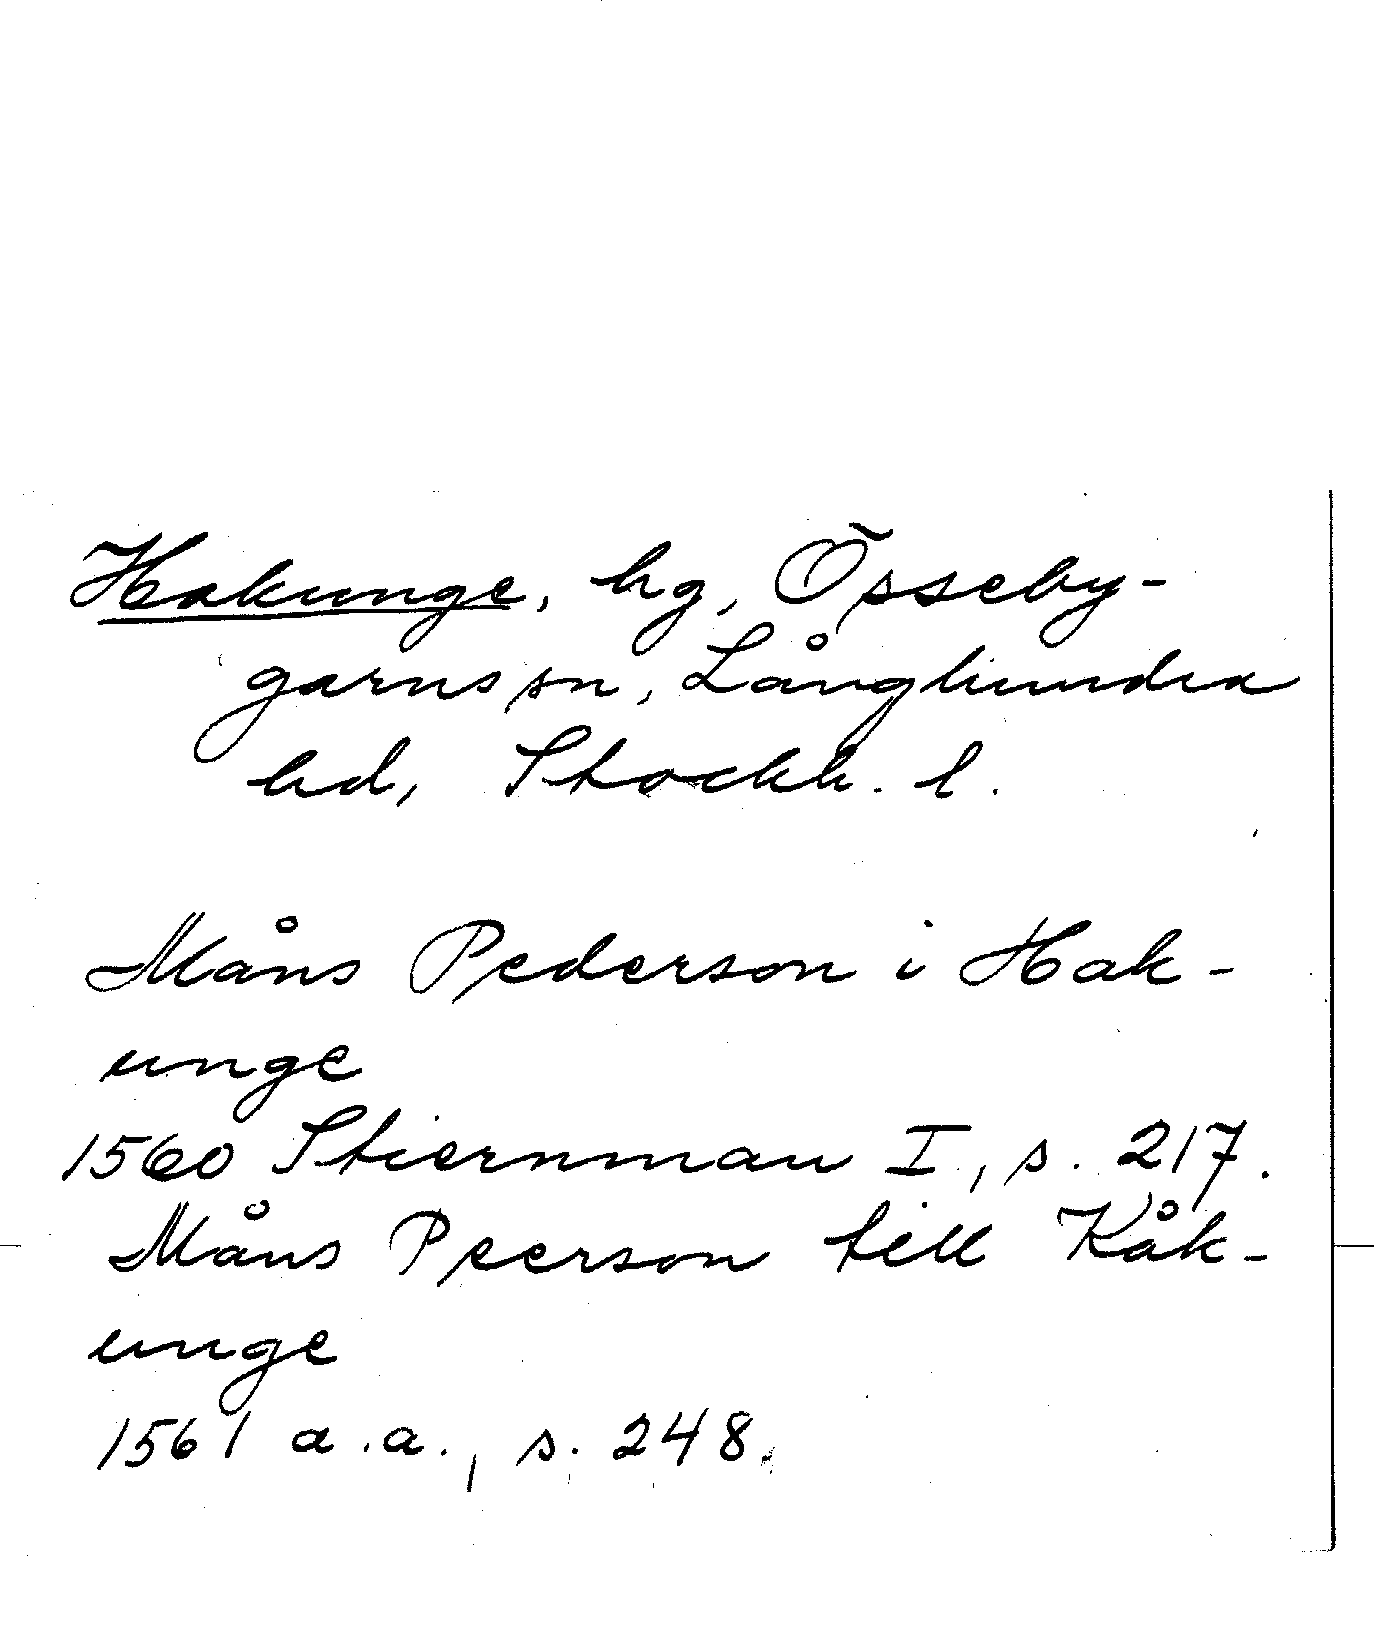 Hakunge, hg, Össeby-
garns sn, Långhundra
hd, Stockh. l.
Måns Pederson i Hak-
unge
1560 Stiernman I, s. 217.
Måns Peerson till Kåk-
unge
1561 a.a., s. 248.